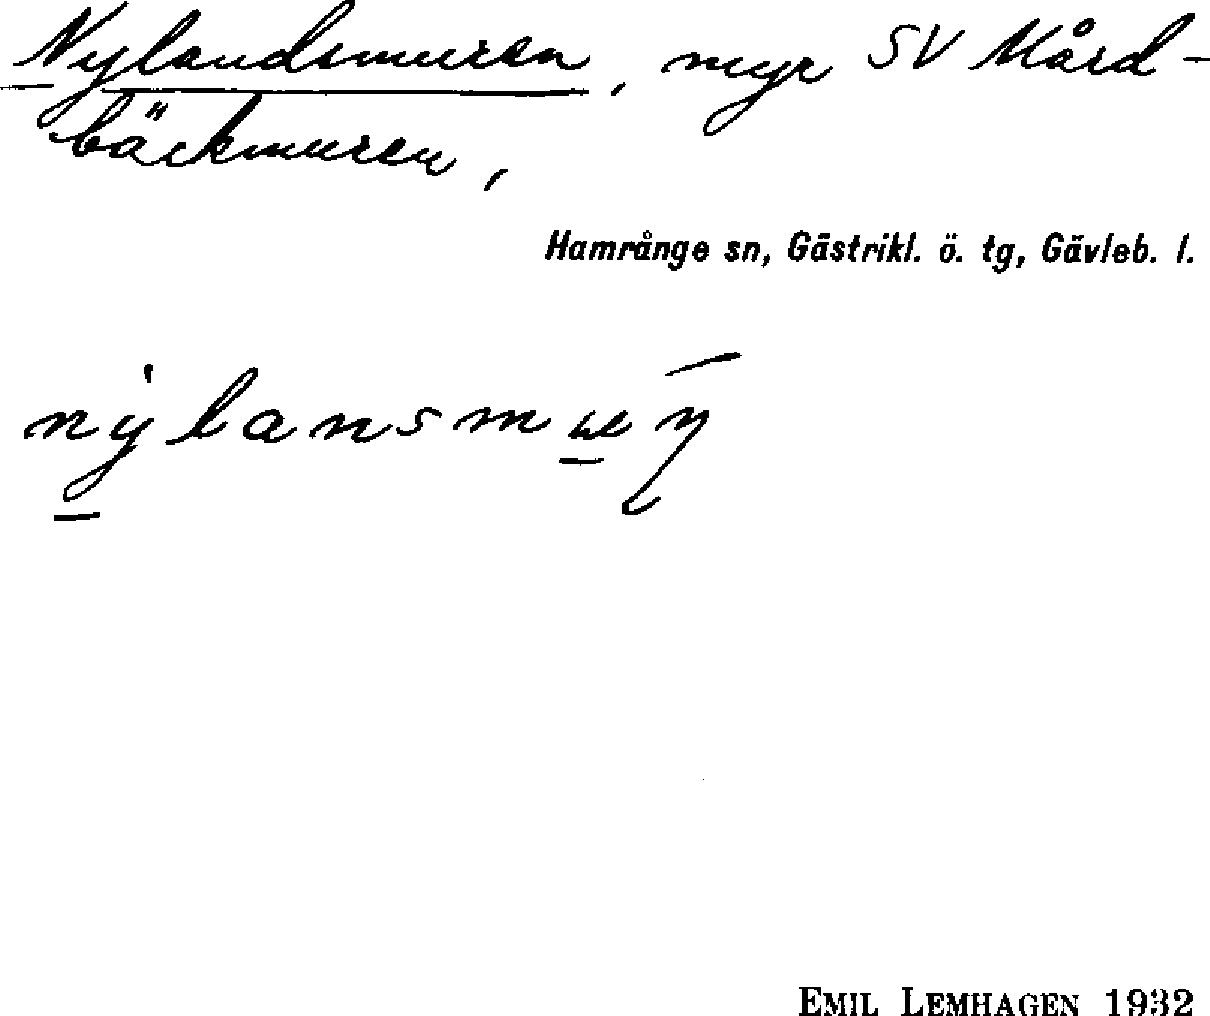 Nylandsmuren, myr SV Mård-
bäckmuren,
Hamrånge sn, Gästrikl. ö. tg, Gävleb. l.
EMIL LEMHAGEN 1932